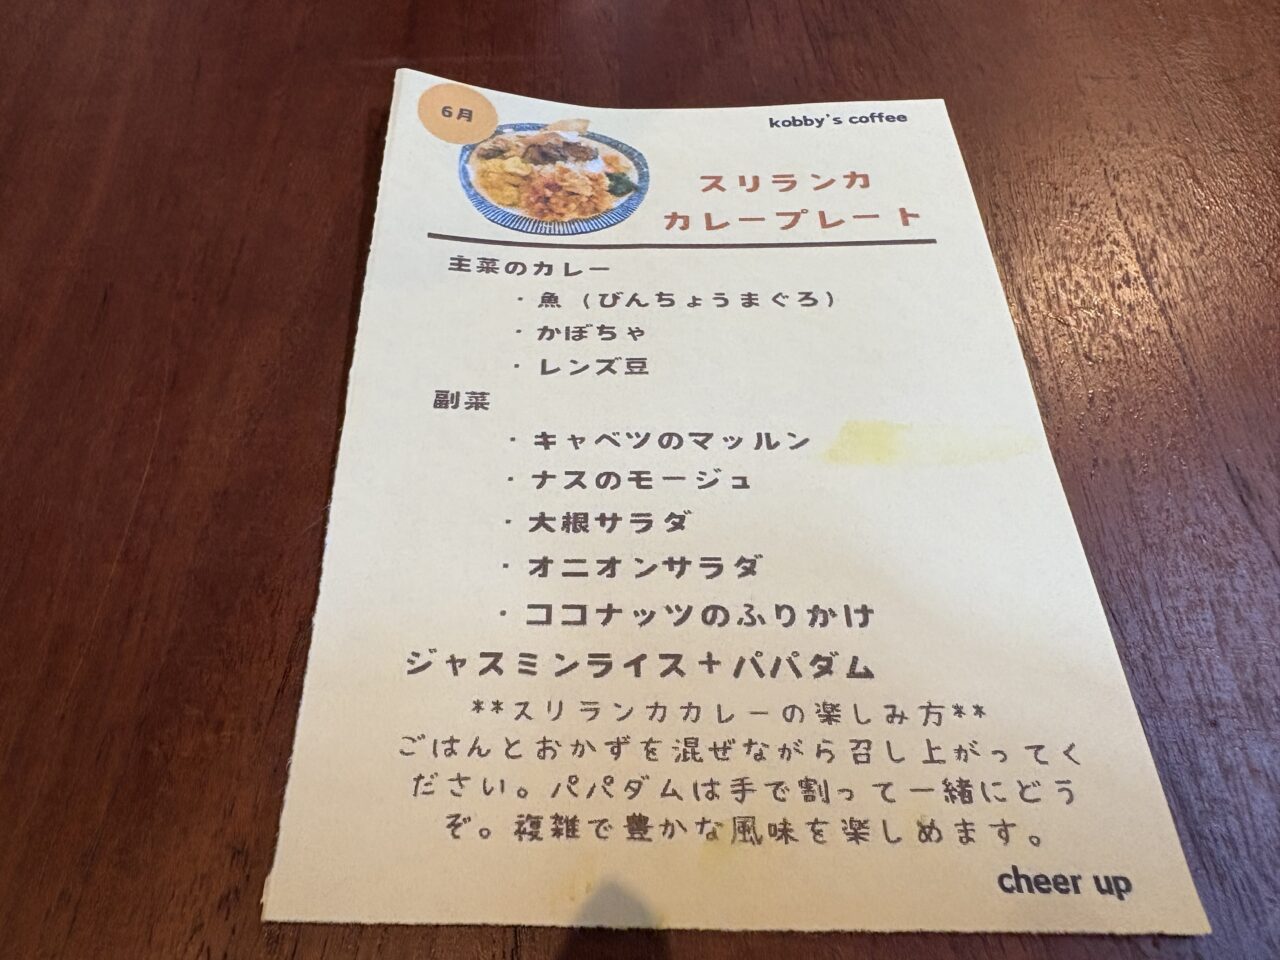 6月
kobby's coffee
スリランカ
カレープレート
主菜のカレー
・魚（びんちょうまぐろ）
・かぼちゃ
・レンズ豆
副菜
・キャベツのマッルン
・ナスのモージュ
・大根サラダ
・オニオンサラダ
・ココナッツのふりかけ
ジャスミンライス＋パパダム
**スリランカカレーの楽しみ方**
ごはんとおかずを混ぜながら召し上がってく
ださい。パパダムは手で割って一緒にどう
ぞ。複雑で豊かな風味を楽しめます。
cheer up